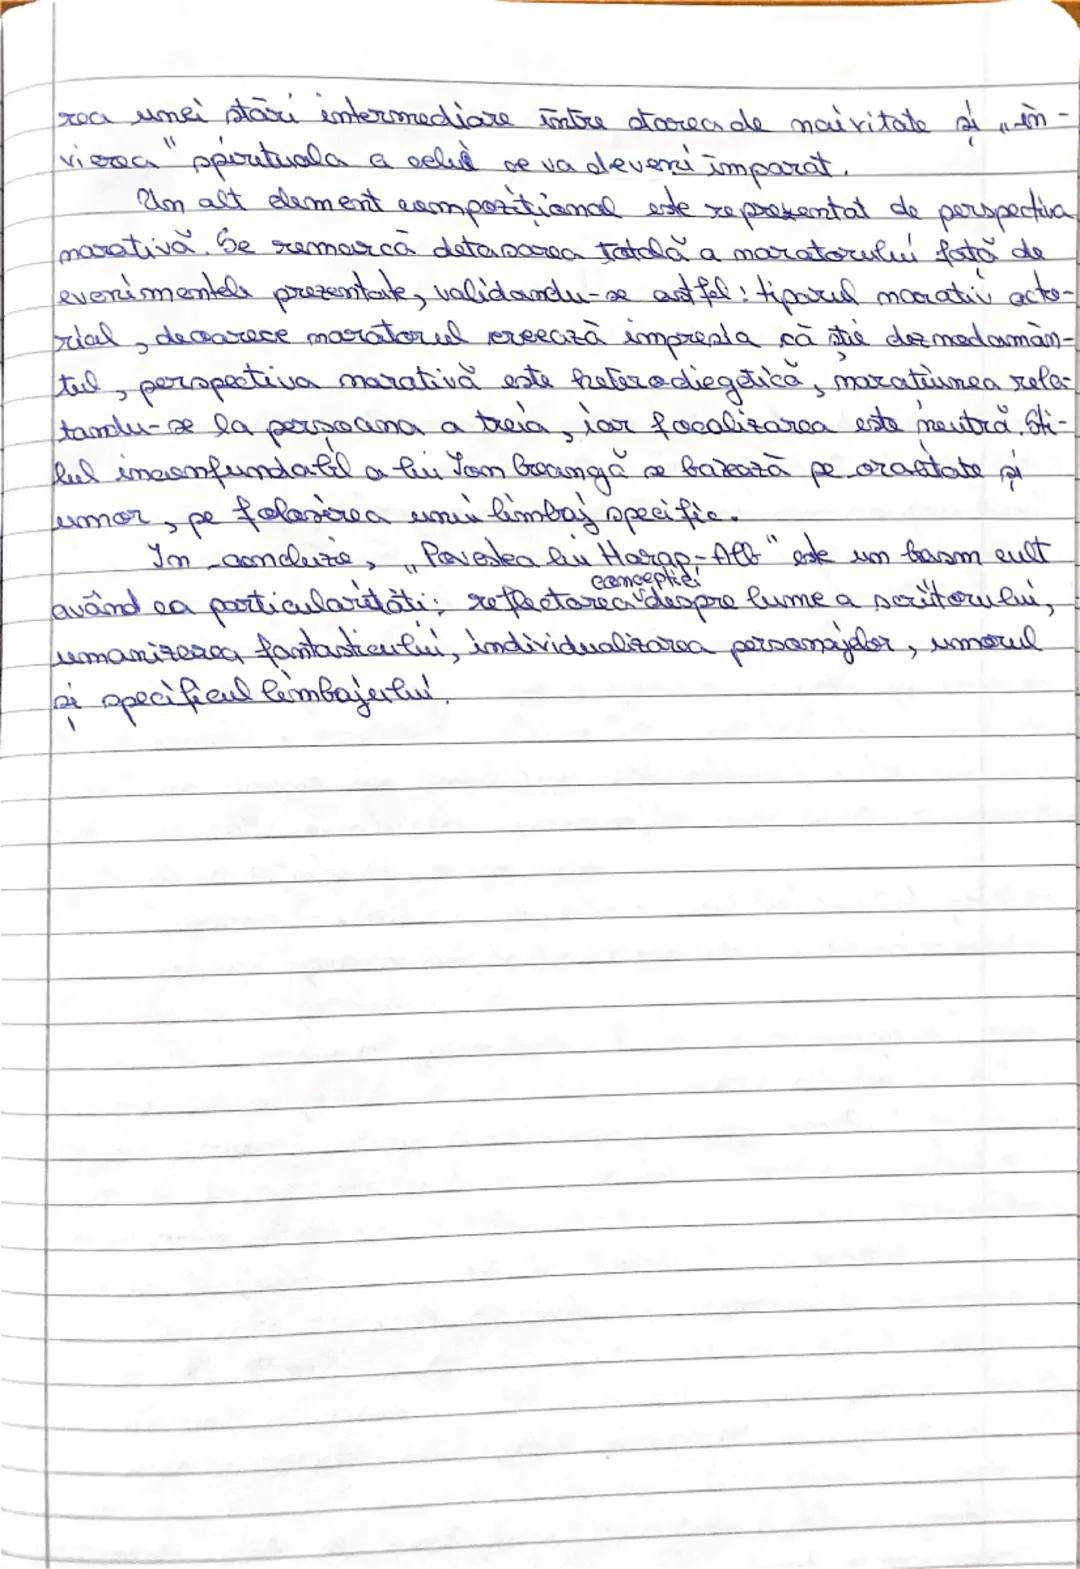 rea unei stări intermediare între starea de naivitate și „în-
vierea" spirituala a celui ce va deveni împarat.
Un alt element compozițional este reprezentat de perspectiva
narativă. Se remarcă detasarea totală a naratorului față de
evenimentele prezentate, validandu-se astfel: tiparul narativ acto-
rial, deoarece naratorul creează impresia că știe deznodamân-
tul, perspectiva narativă este heterodiegetică, naratiunea rela-
tandu-se la persoana a treia, iar focalizarea este neutră. Sti-
lul inconfundabil a lui Ion Creangă se bazează pe oralitate și
umor, pe folosirea unui limbaj specific.
In concluzie, „Povestea lui Harap-Alb" este un basm cult
având ca particularități: reflectarea concepției despre lume a scriitorului,
umanizarea fantasticului, individualizarea personajelor, umorul
și specificul limbajului.